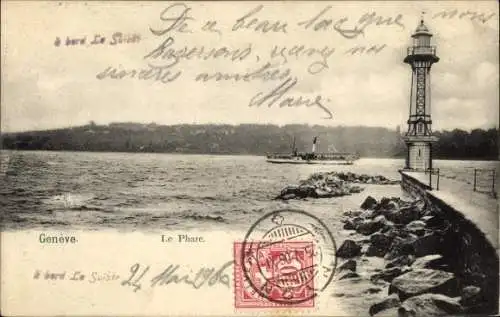 à bord Le Suisse
De ce beau lac que nous
traversons, recevez nos
sincères amitiés
Marie
Genève.
Le Phare.
à bord Le Suisse
24 Mai 1906
10